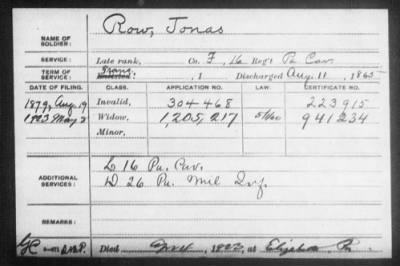 NAME OF SOLDIER: Row, Jonas
SERVICE: Late rank, Co. F, 16 Reg't Pa Cav.
TERM OF SERVICE: Trans. Enlisted: , 1 Discharged Aug. 11, 1865
DATE OF FILING. CLASS. APPLICATION NO. LAW. CERTIFICATE NO.
1879, Aug. 19 Invalid, 304468 223915
1923 May Widow, 1,205,217 941234
Minor,
ADDITIONAL SERVICES: L 16 Pa. Cav.
D 26 Pa. Mil Inf.
REMARKS:
Died 1922, at Elizabeth, Pa.